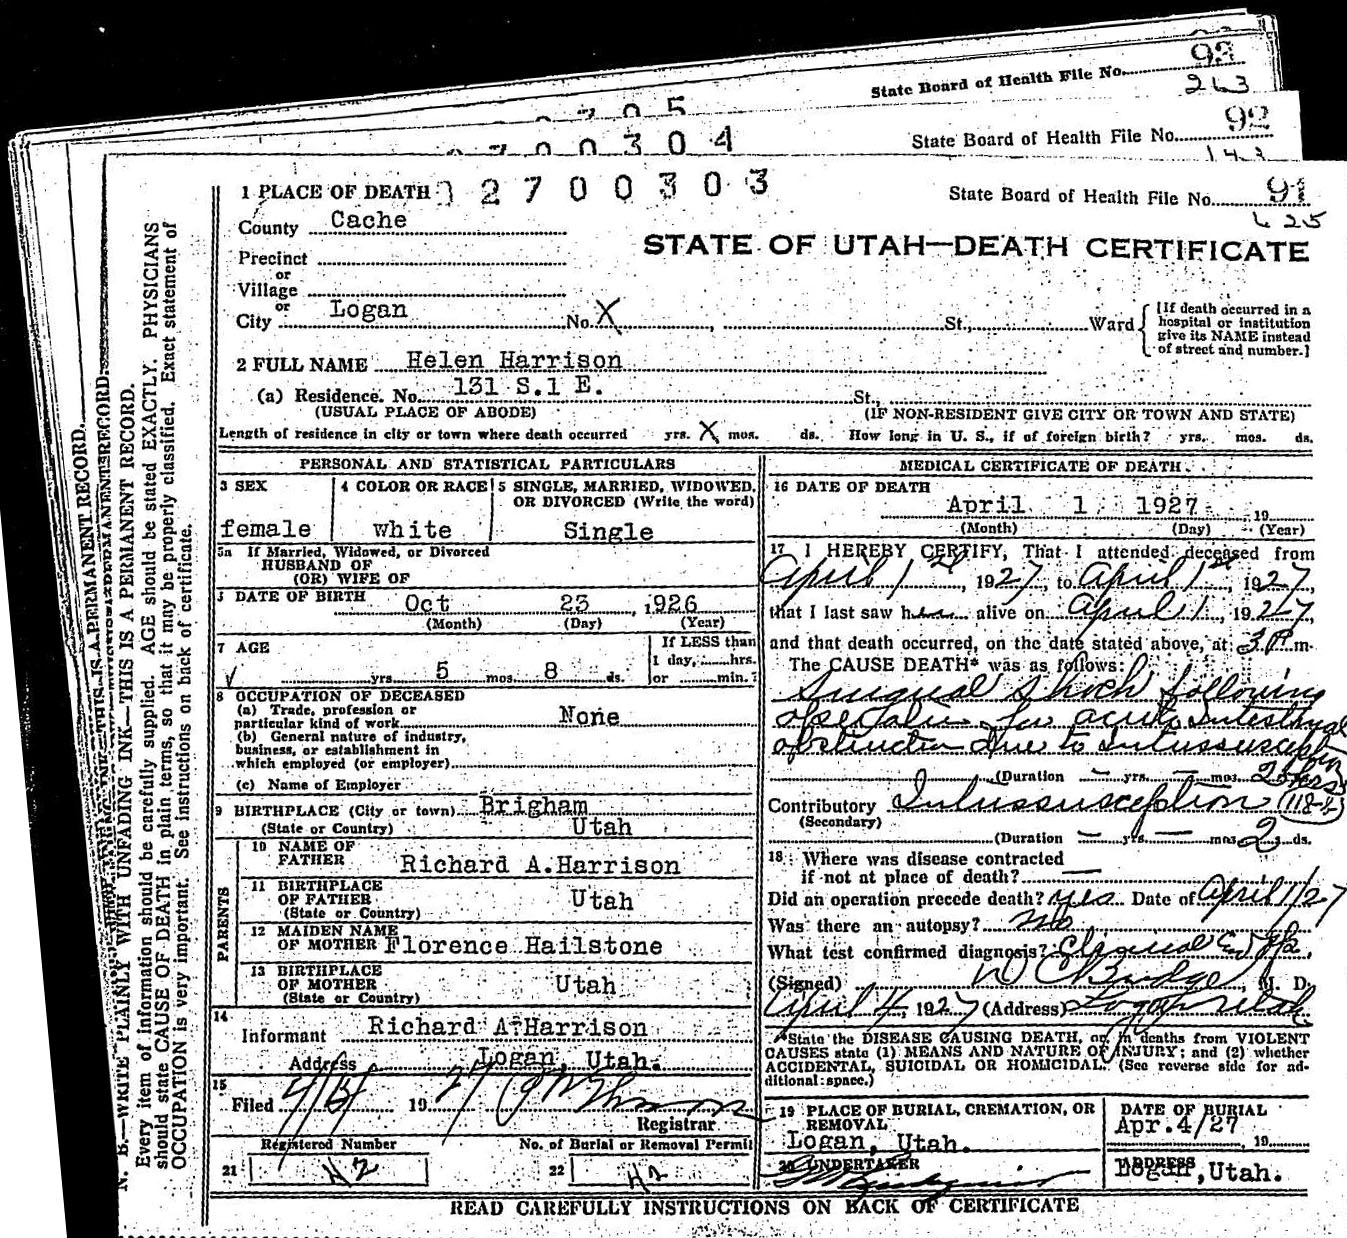 93
State Board of Health File No.
263
705
92
State Board of Health File No.
143
2700304
1 PLACE OF DEATH 2700303
State Board of Health File No. 91
625
County Cache
STATE OF UTAH—DEATH CERTIFICATE
Precinct
or
Village
or
City Logan No. X , St., Ward
[If death occurred in a hospital or institution give its NAME instead of street and number.]
2 FULL NAME Helen Harrison
(a) Residence. No. 131 S.1 E. St.,
(USUAL PLACE OF ABODE) (IF NON-RESIDENT GIVE CITY OR TOWN AND STATE)
Length of residence in city or town where death occurred yrs. X mos. ds. How long in U. S., if of foreign birth? yrs. mos. ds.
PERSONAL AND STATISTICAL PARTICULARS
3 SEX
female
4 COLOR OR RACE
white
5 SINGLE, MARRIED, WIDOWED, OR DIVORCED (Write the word)
Single
5a If Married, Widowed, or Divorced
HUSBAND OF
(OR) WIFE OF
DATE OF BIRTH Oct 23, 1926
(Month) (Day) (Year)
7 AGE
yrs 5 mos. 8 ds.
If LESS than
1 day, hrs.
or min.?
8 OCCUPATION OF DECEASED
(a) Trade, profession or
particular kind of work None
(b) General nature of industry,
business, or establishment in
which employed (or employer)
(c) Name of Employer
9 BIRTHPLACE (City or town) Brigham
(State or Country) Utah
PARENTS
10 NAME OF
FATHER Richard A.Harrison
11 BIRTHPLACE
OF FATHER Utah
(State or Country)
12 MAIDEN NAME
OF MOTHER Florence Hailstone
13 BIRTHPLACE
OF MOTHER Utah
(State or Country)
14
Informant Richard A.Harrison
Address Logan, Utah.
15
Filed 19 27
Registrar
Registered Number
21 42
No. of Burial or Removal Permit
22 42
MEDICAL CERTIFICATE OF DEATH
16 DATE OF DEATH
April 1 1927 , 19
(Month) (Day) (Year)
17 I HEREBY CERTIFY, That I attended deceased from
April 1st, 1927, to April 1st, 1927,
that I last saw her alive on April 1, 1927,
and that death occurred, on the date stated above, at 3 P m.
The CAUSE DEATH* was as follows:
Surgical shock following
operation for acute Intestinal
obstruction due to Intussusception
(Duration — yrs. — mos. 2 ds.
Contributory Intussusception (118-b)
(Secondary)
(Duration — yrs — mos 2 ds.
18 Where was disease contracted
if not at place of death? —
Did an operation precede death? yes Date of April 1/27
Was there an autopsy? no
What test confirmed diagnosis? Clinical & Op.
(Signed) W C Budge, M. D.
April 4, 1927 (Address) Logan Utah
*State the DISEASE CAUSING DEATH, or, in deaths from VIOLENT
CAUSES state (1) MEANS AND NATURE OF INJURY; and (2) whether
ACCIDENTAL, SUICIDAL OR HOMICIDAL. (See reverse side for ad-
ditional space.)
19 PLACE OF BURIAL, CREMATION, OR
REMOVAL
Logan, Utah.
DATE OF BURIAL
Apr.4/27 , 19
20 UNDERTAKER
ADDRESS
Logan,Utah.
READ CAREFULLY INSTRUCTIONS ON BACK OF CERTIFICATE
N. B.—WRITE PLAINLY WITH UNFADING INK—THIS IS A PERMANENT RECORD.
Every item of information should be carefully supplied. AGE should be stated EXACTLY. PHYSICIANS
should state CAUSE OF DEATH in plain terms, so that it may be properly classified. Exact statement of
OCCUPATION is very important. See instructions on back of certificate.